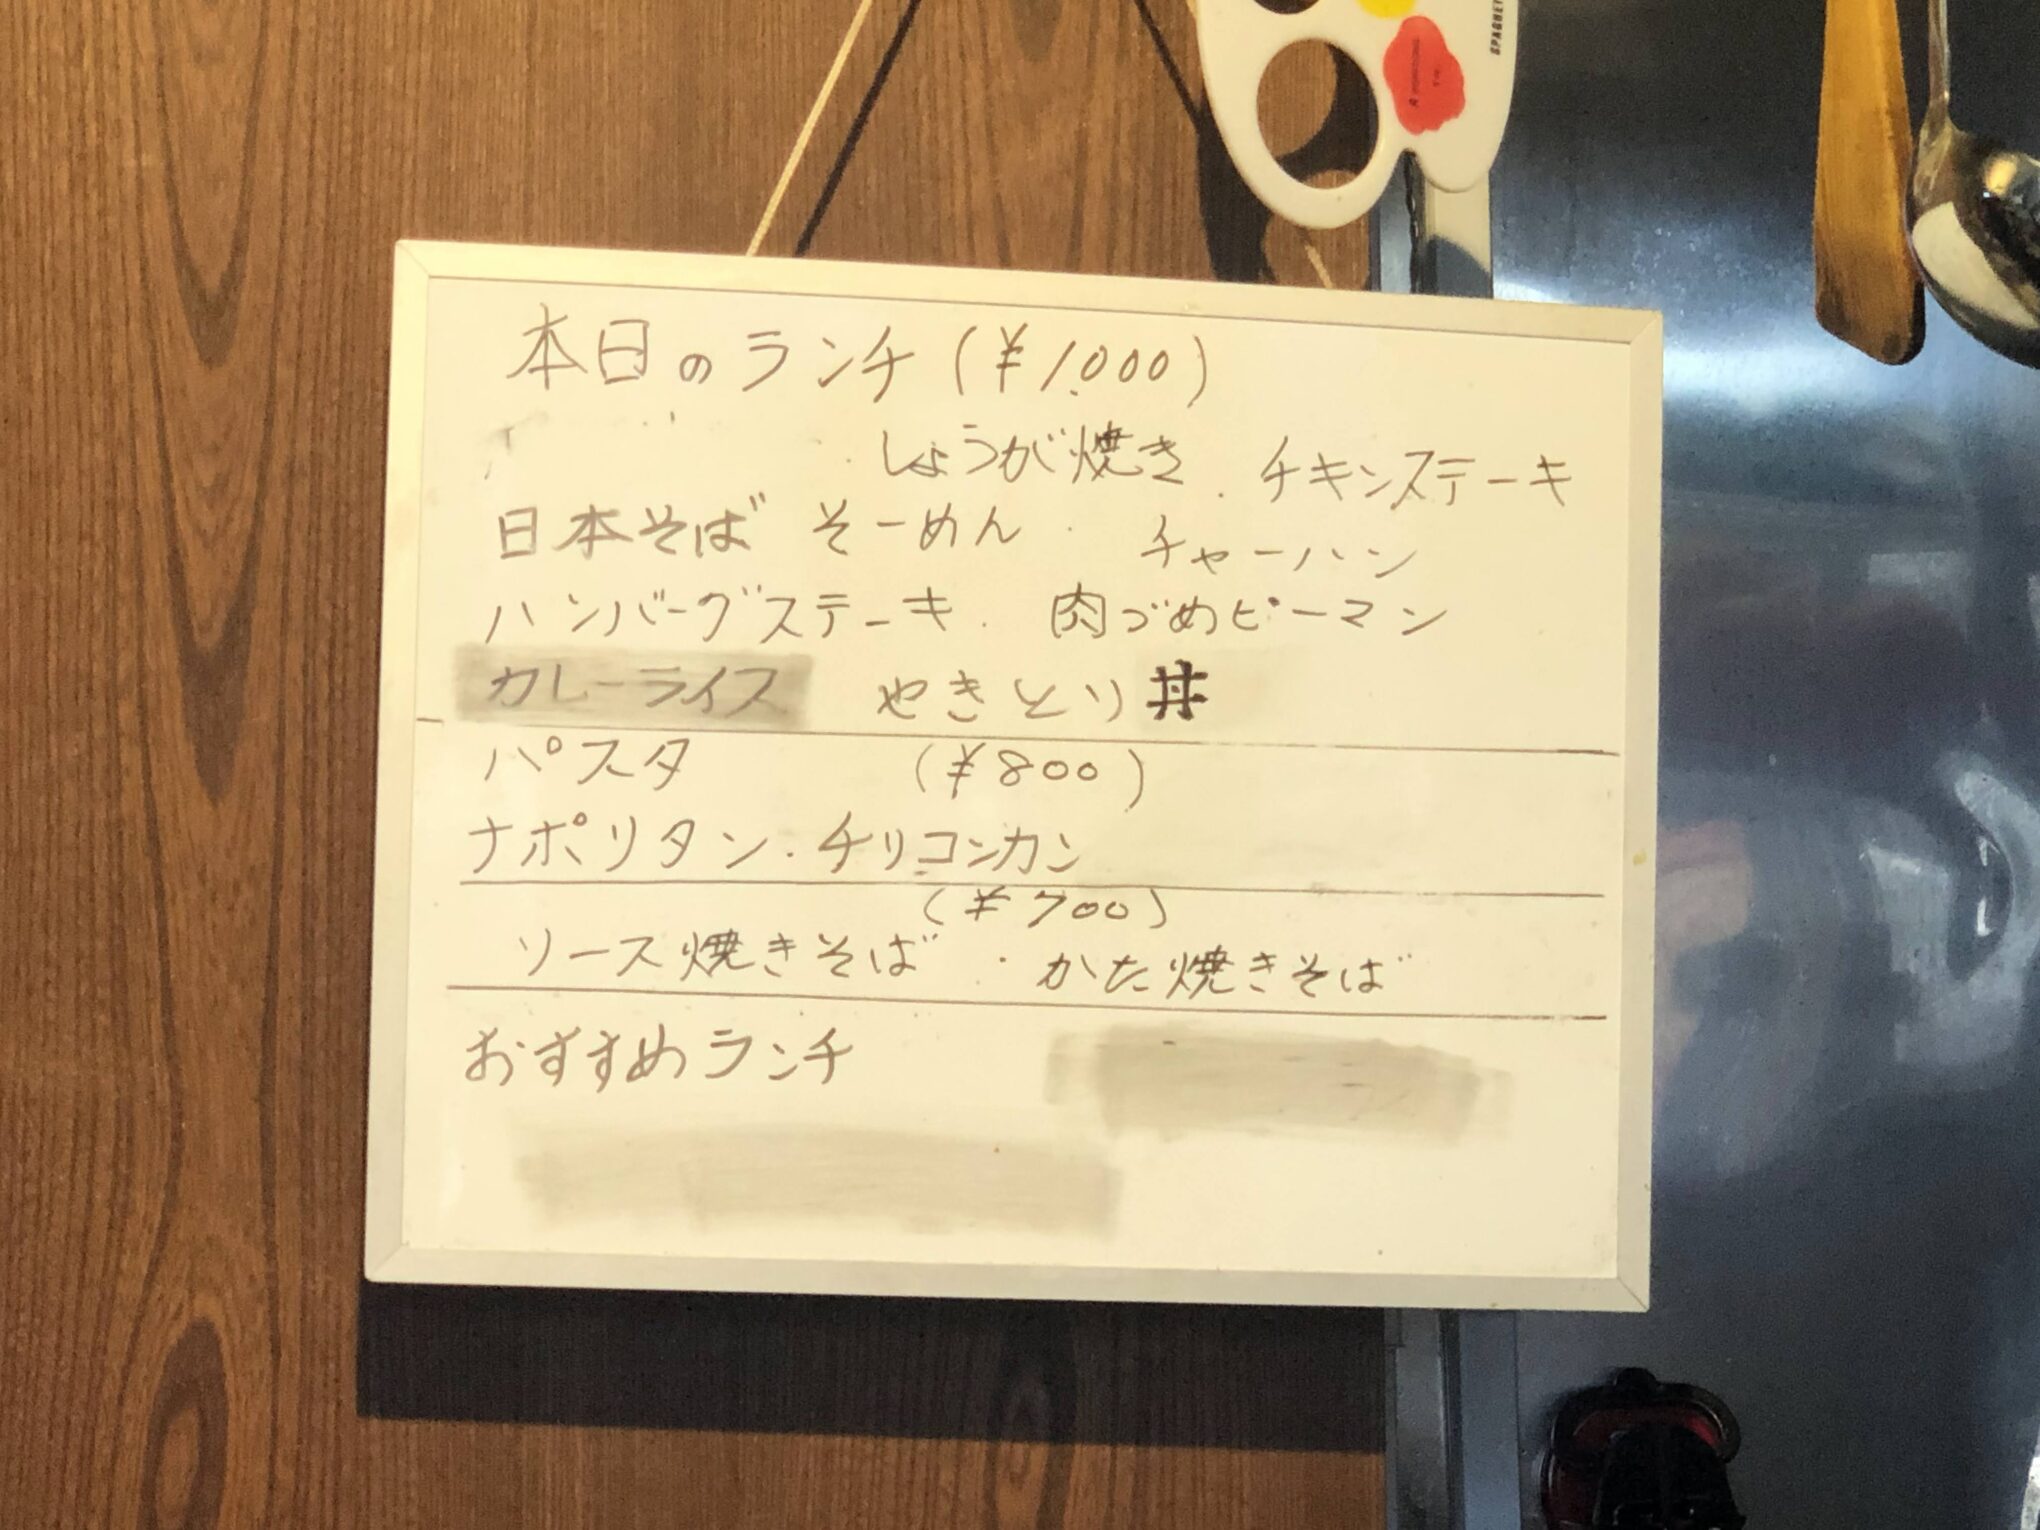 本日のランチ (¥1,000)
しょうが焼き . チキンステーキ
日本そば そーめん . チャーハン
ハンバーグステーキ . 肉づめピーマン
カレーライス やきとり丼
パスタ (¥800)
ナポリタン . チリコンカン
(¥700)
ソース焼きそば ・ かた焼きそば
おすすめランチ